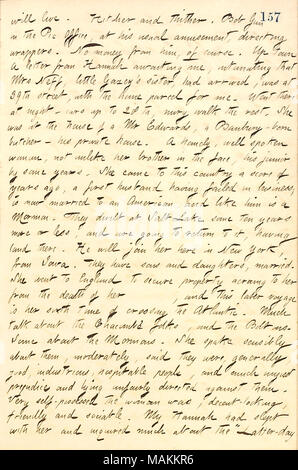 157
will live. Hither and thither. Bob Gun
in the Pic Office, at his usual amusement directing
wrappers. No money from him, of course. Up town
a letter from Hannah awaiting me, intimating that
Mrs Neff, little Gazey's sister, had arrived, was at
39th street, with the home parcel for me. Went there
at night — cars up to 28th, nury walk the rest. She
was at the house of a Mr Edwards, a Banbury-born
butcher — his private house. A homely, well spoken
woman, not unlike her brother in the face, his junior
by some years. She came to this country a score of
years ago, a first husband having failed in business,
is now married to an American, bred like him is a
Mormon. They dwelt at Salt Lake some ten years
more or less, and are going to return to it, having
land there. He will join her here in New York,
from Iowa. They have sons and daughters, married.
She went to England to secure property accruing to her
from the death of her , and this later voyage
is her sixth time of crossing the Atlantic. Much
talk about the Chacombe folks, and the Boltons.
Some about the Mormons. She spoke sensibly
about them, moderately, said they were generally
good, industrious, hospitable people, and much unjust
prejudice and lying unfairly directed against them.
Very self-possessed the woman was, decent-looking
friendly and sociable. My Hannah had slept
with her and inquired much about the "Latter-day
alamy
MAKKR6
www.alamy.com